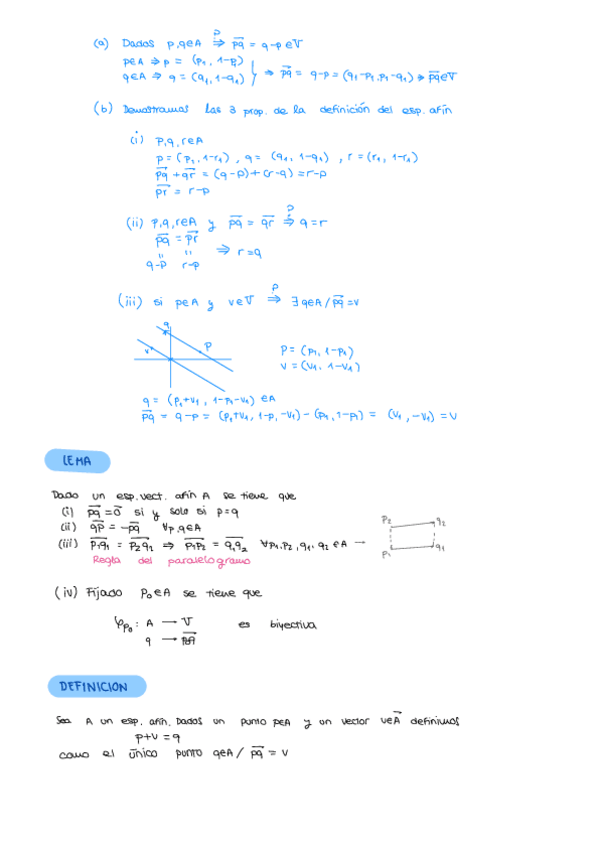 (a) Dados p,q∈A ⇒? pq⃗ = q-p∈V⃗
p∈A ⇒ p = (p₁, 1-p₁)
q∈A ⇒ q = (q₁, 1-q₁) } ⇒ pq⃗ = q-p = (q₁-p₁, p₁-q₁) ⇒ pq⃗∈V⃗
(b) Demostramos las 3 prop. de la definición del esp. afín
(i) p,q,r∈A
p = (p₁, 1-r₁), q = (q₁, 1-q₁), r = (r₁, 1-r₁)
pq⃗ + qr⃗ = (q-p)+(r-q) = r-p
pr⃗ = r-p
(ii) p,q,r∈A y pq⃗ = qr⃗ ⇒? q=r
pq⃗ = pr⃗
" " ⇒ r=q
q-p r-p
(iii) si p∈A y v∈V⃗ ⇒? ∃q∈A / pq⃗ = v
q
v p
p = (p₁, 1-p₁)
v = (v₁, 1-v₁)
q = (p₁+v₁, 1-p₁-v₁) ∈A
pq⃗ = q-p = (p₁+v₁, 1-p₁-v₁) - (p₁, 1-p₁) = (v₁, -v₁) = v
LEMA
Dado un esp. vect. afín A se tiene que
(i) pq⃗ = 0⃗ si y solo si p=q
(ii) qp⃗ = -pq⃗ ∀p,q∈A
(iii) p₁q₁⃗ = p₂q₂⃗ ⇒ p₁p₂⃗ = q₁q₂⃗ ∀p₁,p₂,q₁,q₂ ∈A →
p₂ q₂
p₁ q₁
Regla del paralelogramo
(iv) Fijado p₀∈A se tiene que
φp₀: A → V⃗ es biyectiva
q →
DEFINICION
Sea A un esp. afín. Dados un punto p∈A y un vector v∈A⃗ definimos
p+v = q
como el único punto q∈A / pq⃗ = v